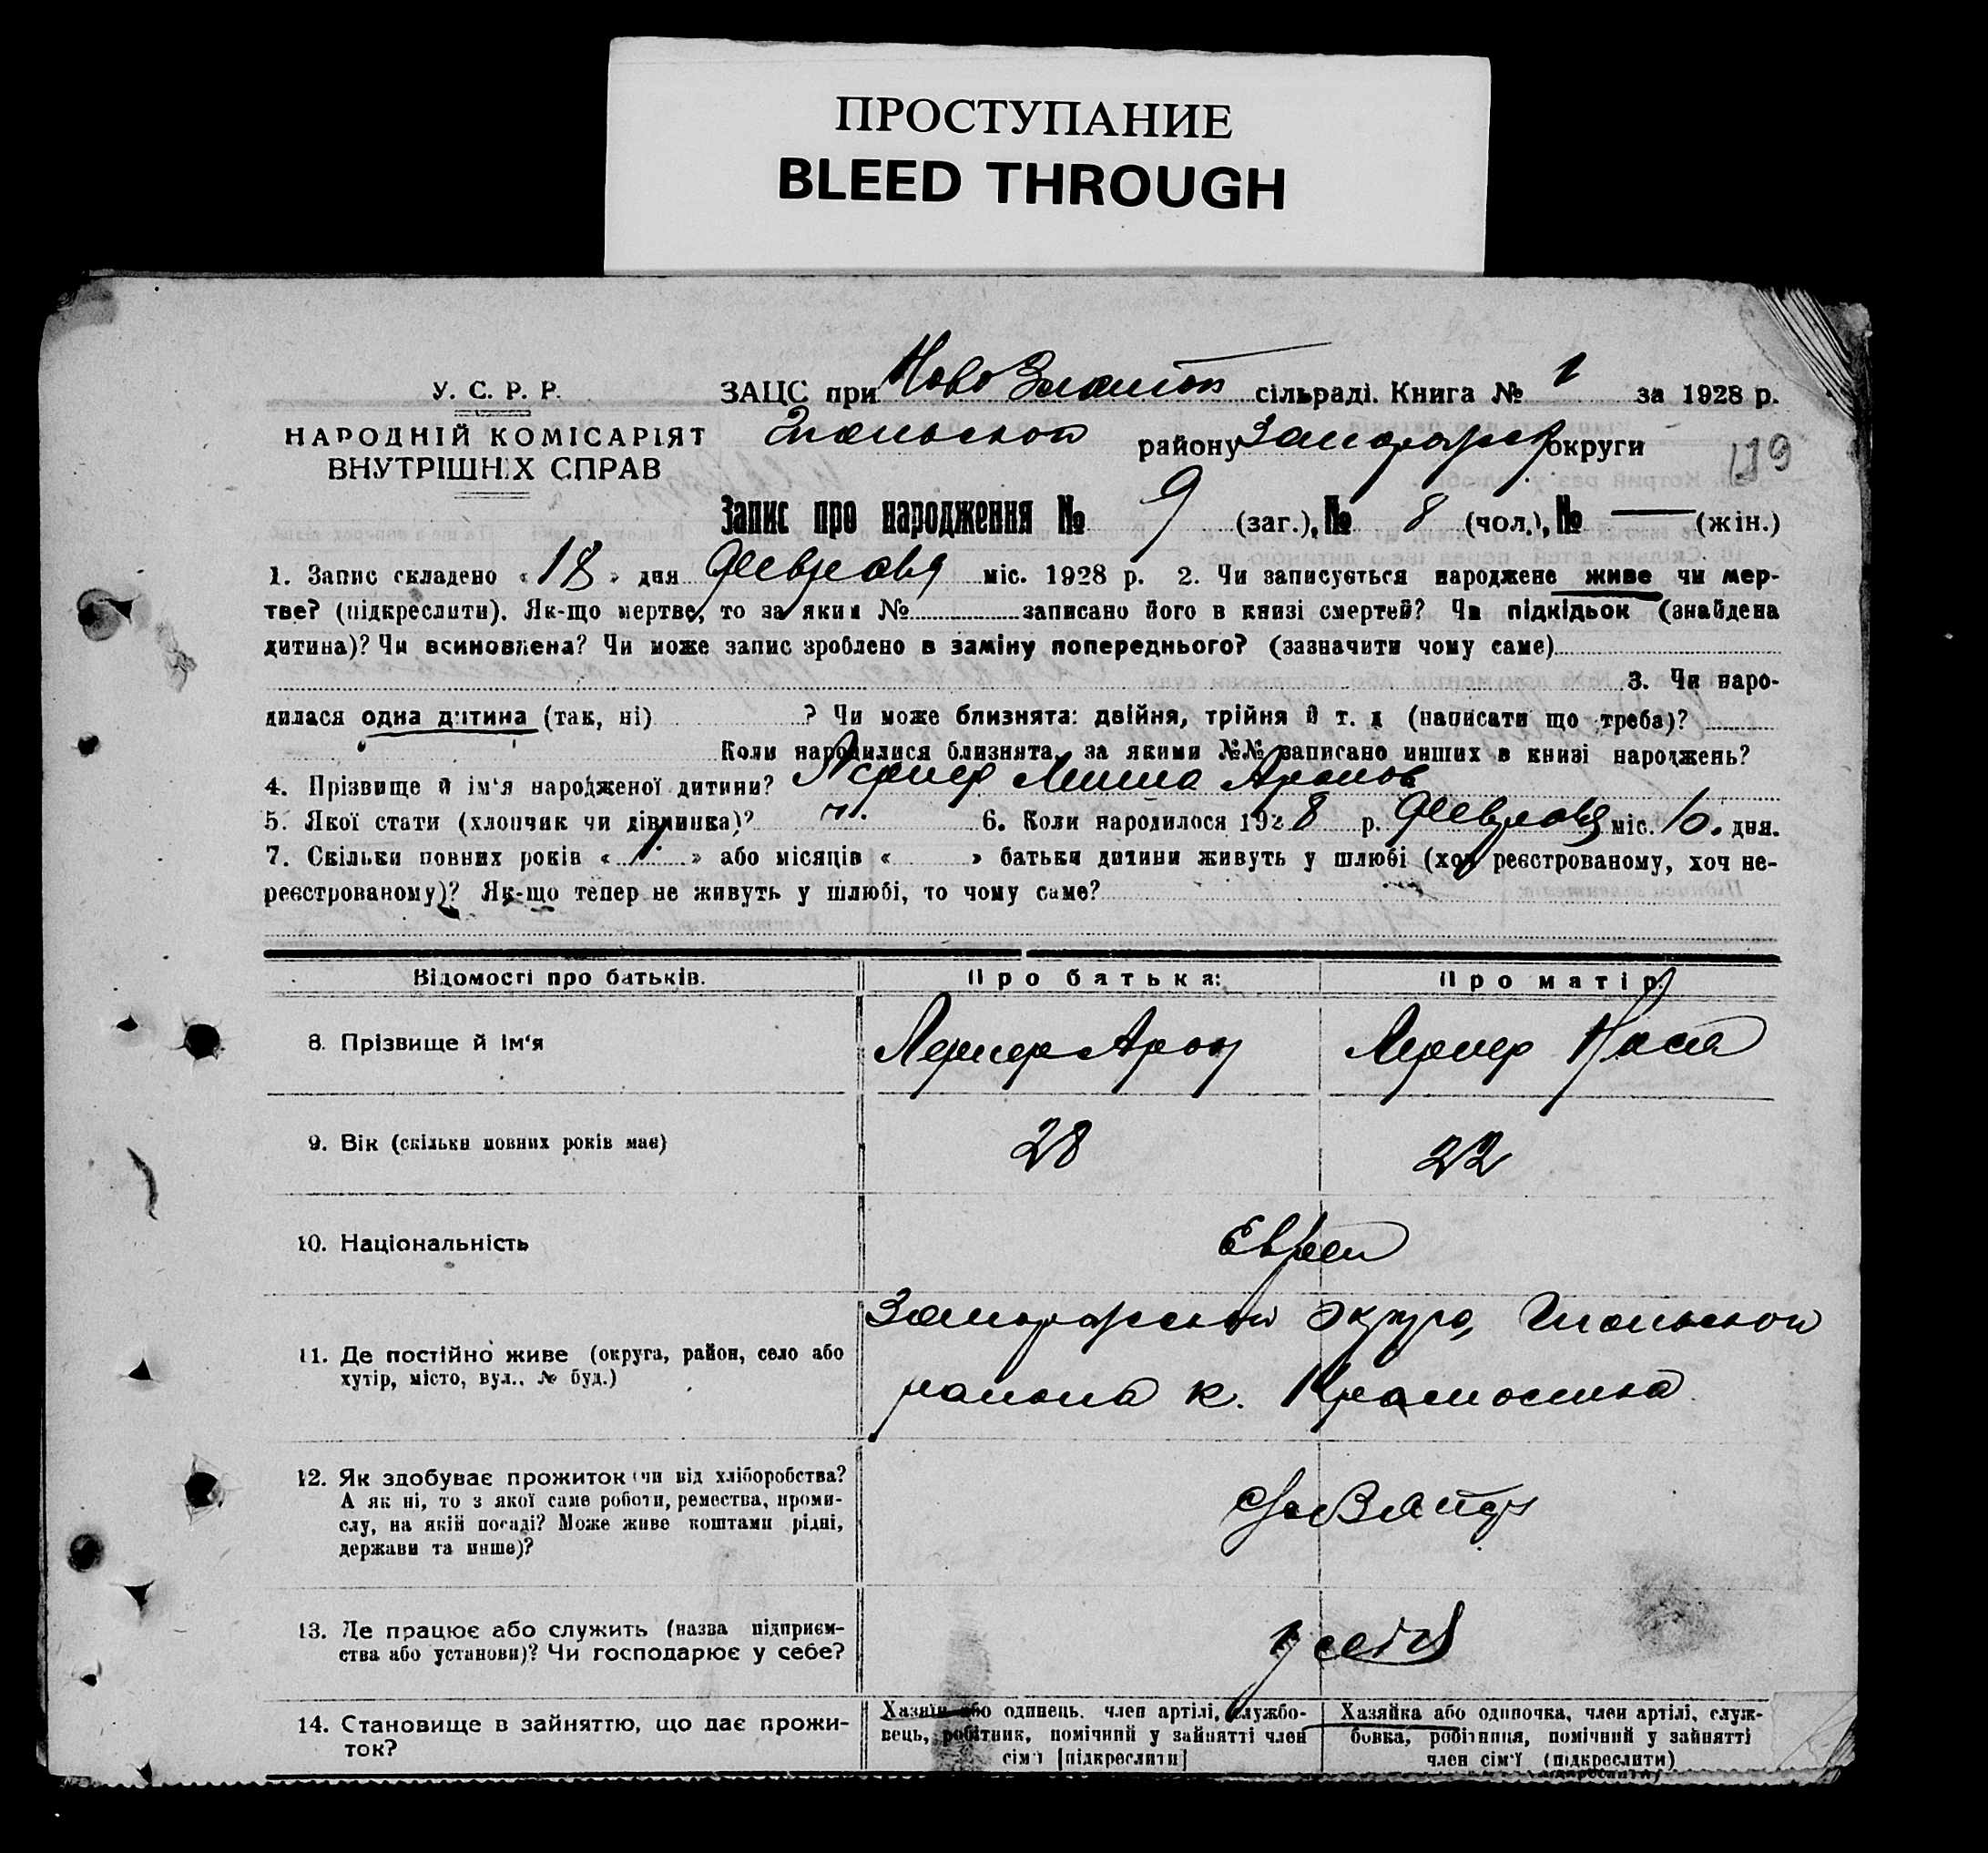 ПРОСТУПАНИЕ
BLEED THROUGH
У. С. Р. Р.
НАРОДНІЙ КОМІСАРІЯТ
ВНУТРІШНІХ СПРАВ
ЗАЦС при Ново Златоп сільраді. Книга № 1 за 1928 р.
району Запорожс округи
119
Запис про народження № 9 (заг.), № 8 (чол.), № — (жін.)
1. Запис складено « 18 » дня Февраля міс. 1928 р. 2. Чи записується народжене живе чи мер-
тве? (підкреслити). Як-що мертве, то за яким № записано його в книзі смертей? Чи підкідьок (знайдена
дитина)? Чи всиновлена? Чи може запис зроблено в заміну попереднього? (зазначити чому саме)
3. Чи наро-
дилася одна дитина (так, ні) ? Чи може близнята: двійня, трійня й т. д (написати що треба)?
Коли народилися близнята, за якими №№ записано инших в книзі народжень?
4. Прізвище й ім'я народженої дитини? Лернер Миша Аронов
5. Якої стати (хлопчик чи дівчинка)? м. 6. Коли народилося 1928 р. Февраля міс. 10. дня.
7. Скільки повних років « 1 » або місяців « » батьки дитини живуть у шлюбі (хоч реєстрованому, хоч не-
реєстрованому)? Як-що тепер не живуть у шлюбі, то чому саме?
Відомості про батьків. Про батька: Про матір:
8. Прізвище й ім'я Лернер Арон Лернер Нася
9. Вік (скільки повних років має) 28 22
10. Національність Евреи
11. Де постійно живе (округа, район, село або
хутір, місто, вул.. № буд.)
Запорожской округа,
района к.
12. Як здобуває прожиток (чи від хліборобства?
А як ні, то з якої саме роботи, ремества, проми-
слу, на якій посаді? Може живе коштами рідні,
держави та инше)?
13. Де працює або служить (назва підприєм-
ства або установи)? Чи господарює у себе?
у себя
14. Становище в зайняттю, що дає прожи-
ток?
Хазяїн або одинець. член артілі, службо-
вець, робітник, помічний у зайнятті член
сім'ї [підкреслити]
Хазяйка або одиночка, член артілі, служ-
бовка, робітниця, помічний у зайнятті
член сім'ї (підкреслити)